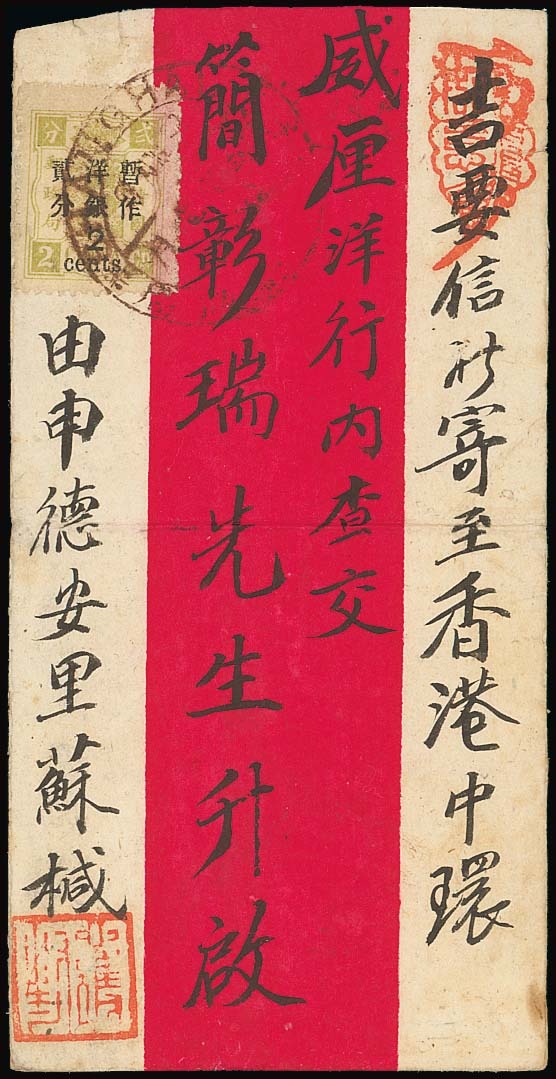 吉要信祈寄至香港中環
威厘洋行內查交
簡彰瑞先生升啟
由申德安里蘇椷
暫作
洋銀
貳分
2
cents.
分
2